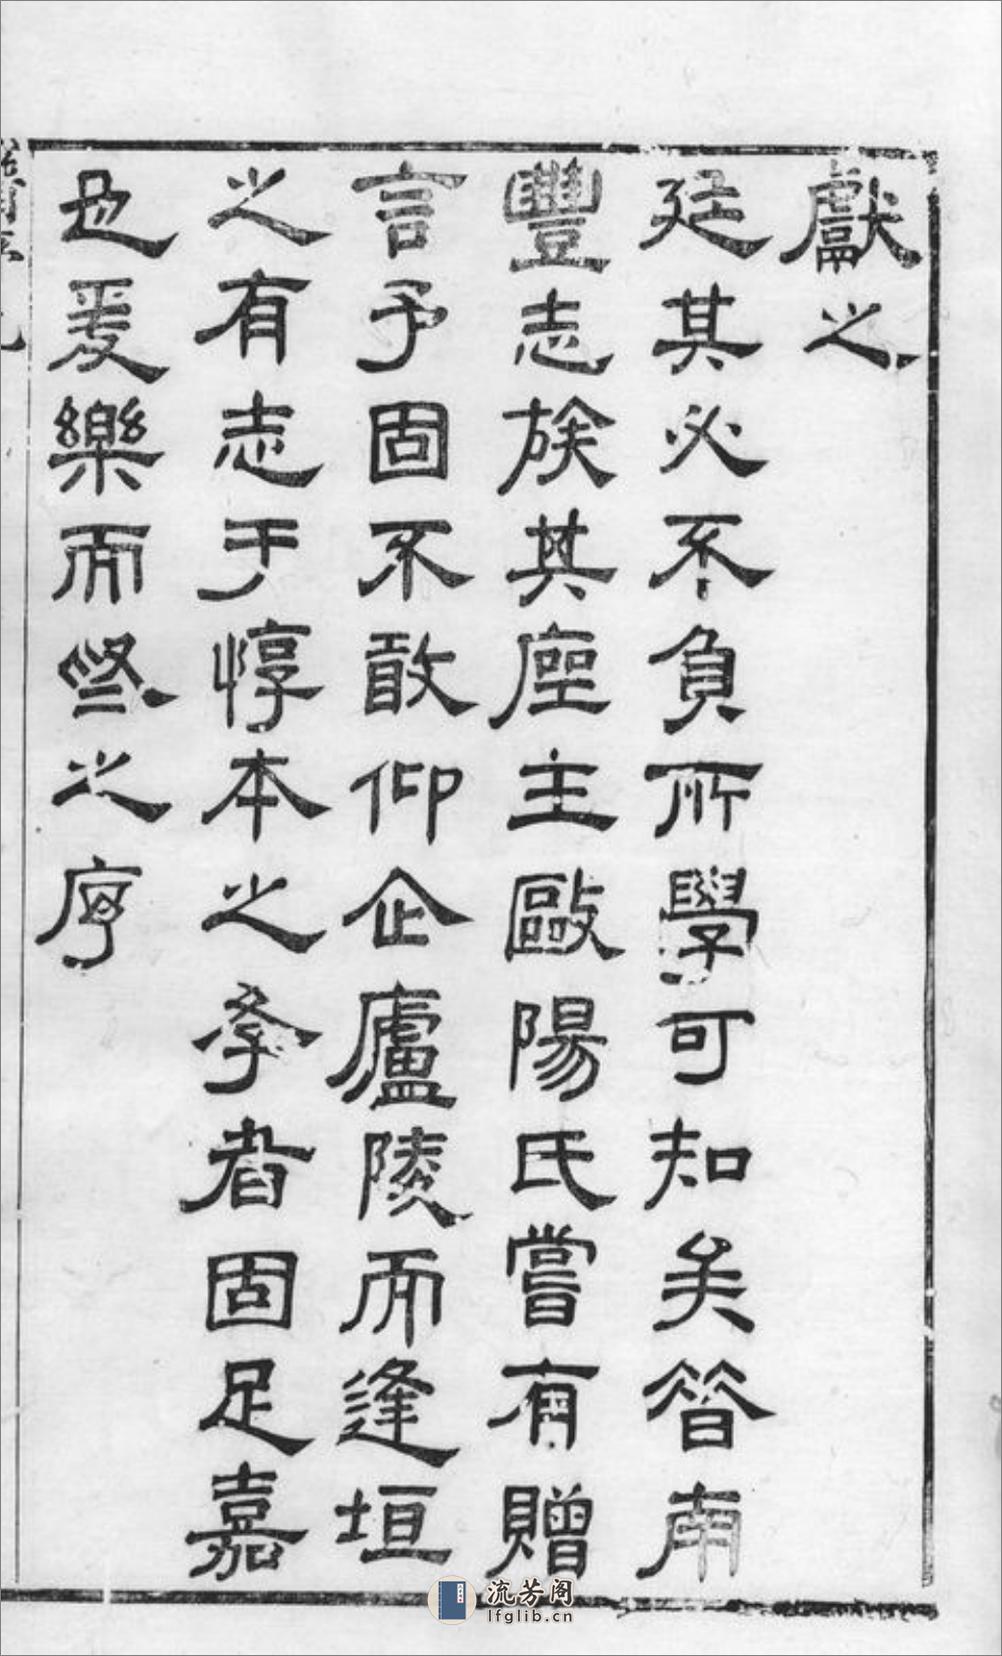 獻之
廷其必不負所學可知矣昝南
豐志族其座主歐陽氏嘗有贈
言予固不敢仰企廬陵而逢垣
之有志于惇本之孝者固足嘉
也爰樂而終之序
流芳阁
lfglib.cn